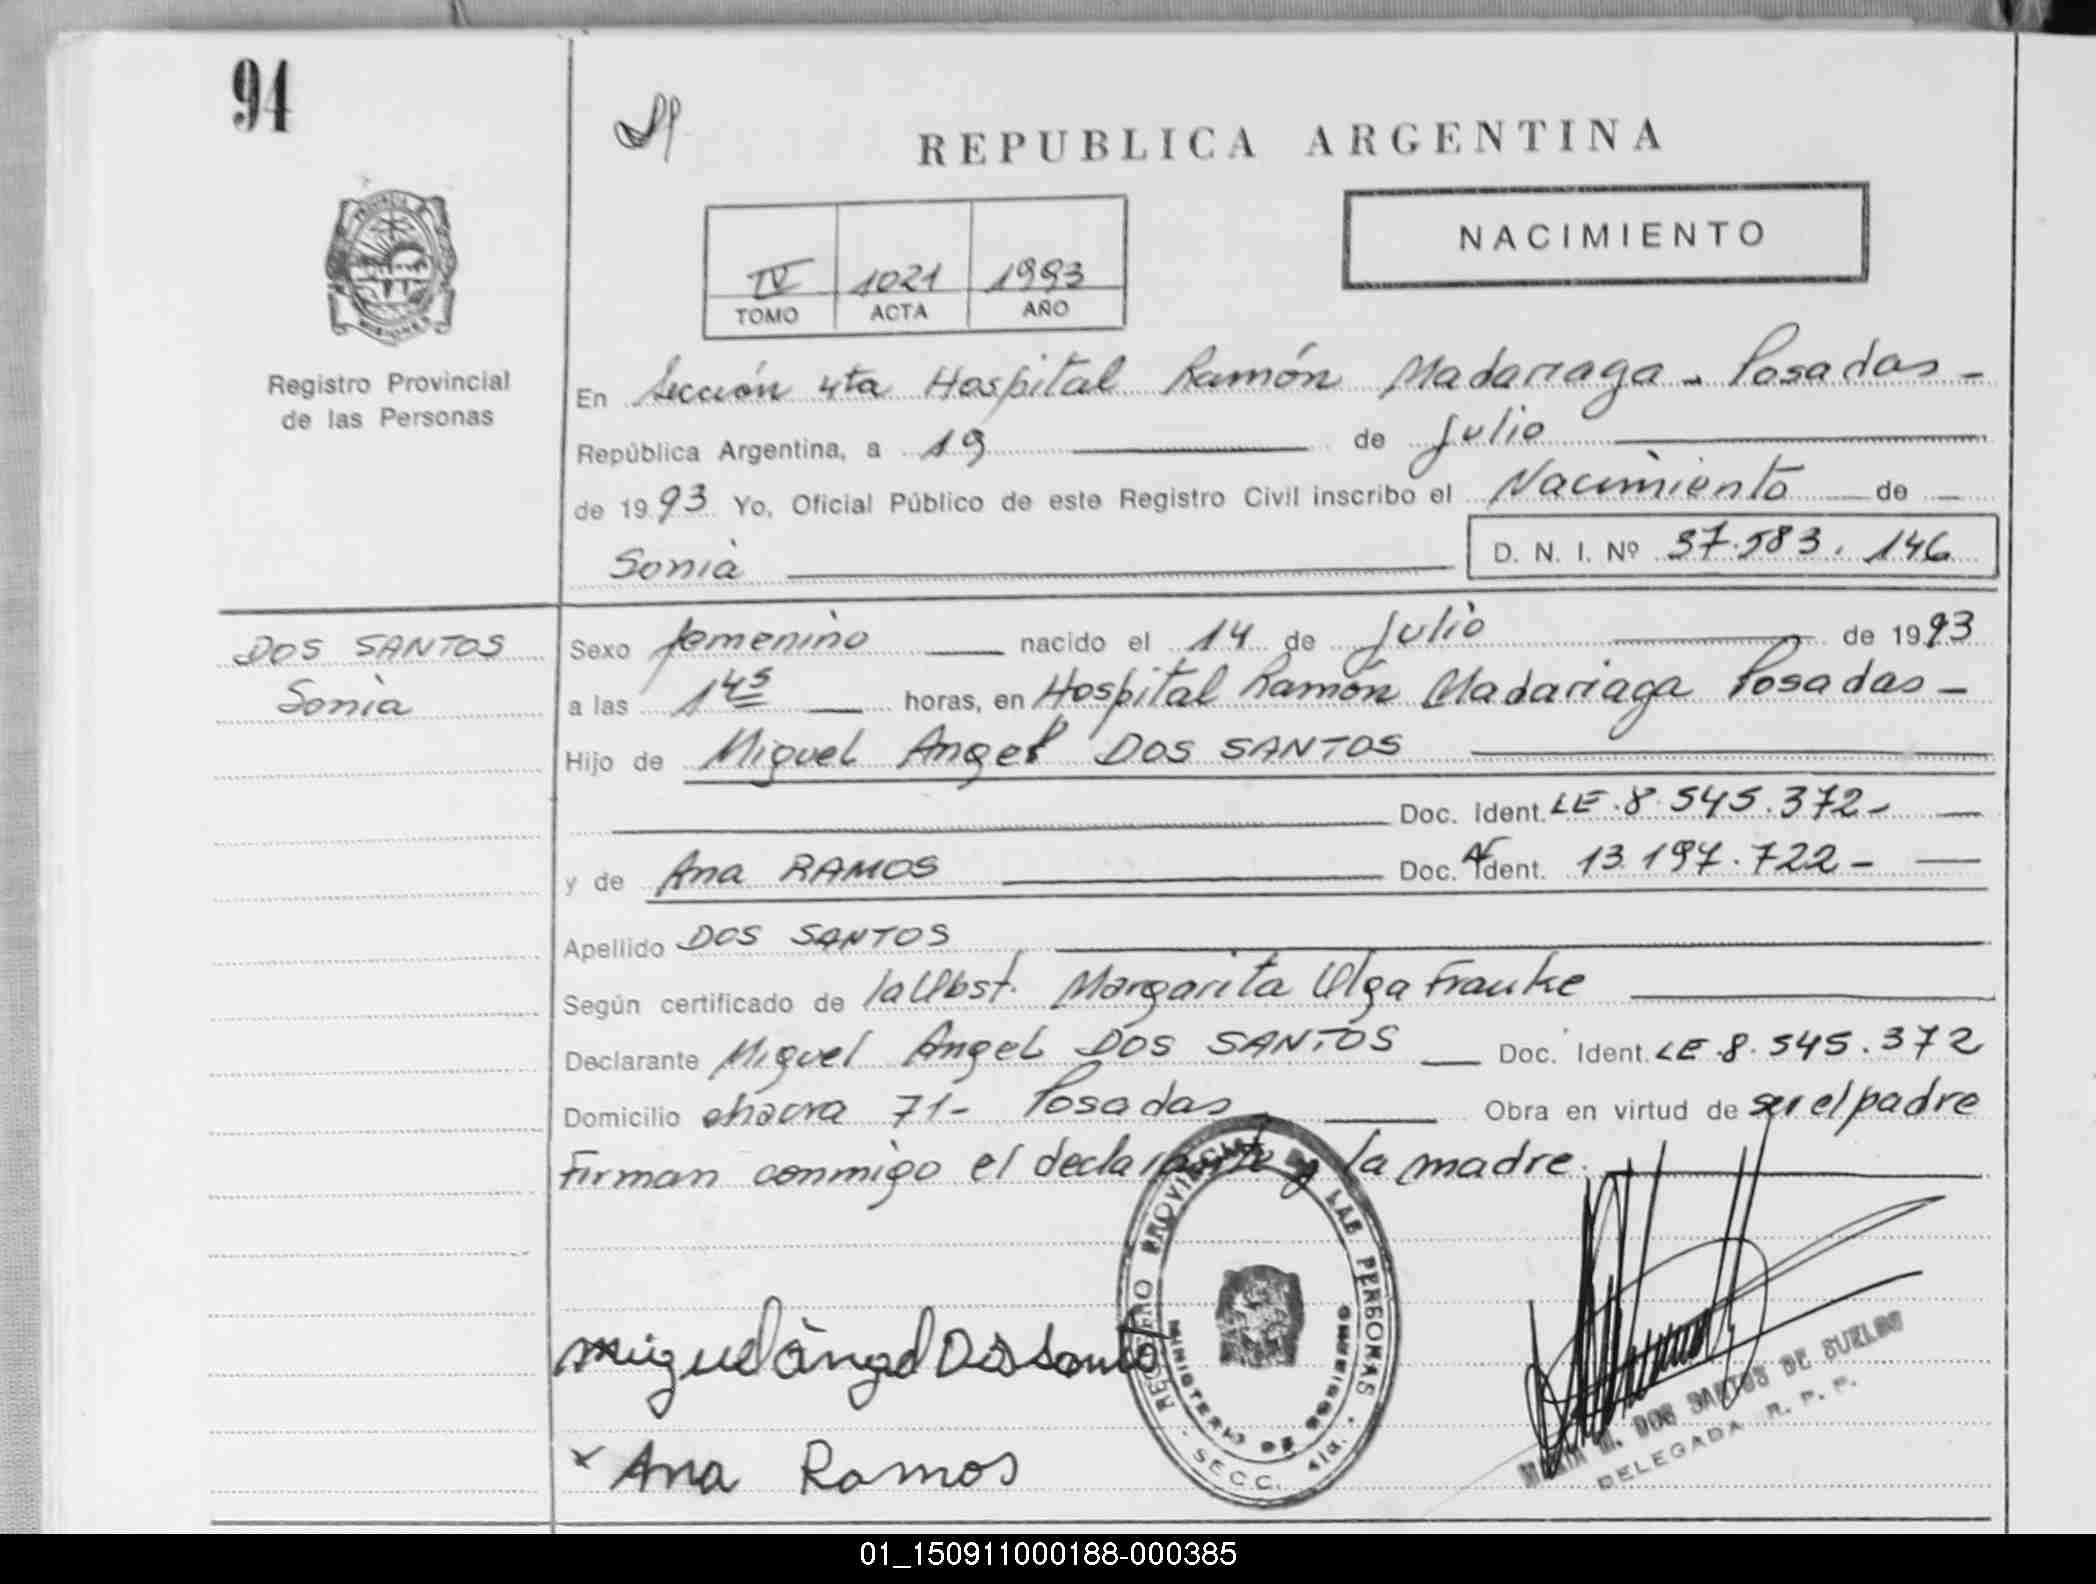 94
REPUBLICA ARGENTINA
NACIMIENTO
IV 1021 1993
TOMO ACTA AÑO
Registro Provincial
de las Personas
En Sección 4ta Hospital Ramón Madariaga - Posadas -
República Argentina, a 19 de Julio
de 1993 Yo, Oficial Público de este Registro Civil inscribo el Nacimiento de
Sonia D. N. I. Nº 37.583.146
DOS SANTOS
Sonia
Sexo femenino nacido el 14 de Julio de 1993
a las 1 45 horas, en Hospital Ramón Madariaga Posadas -
Hijo de Miguel Angel DOS SANTOS
Doc. Ident. LE.8.545.372-
y de Ana RAMOS Doc. Ident. 13.197.722-
Apellido DOS SANTOS
Según certificado de la Obst. Margarita Olga Franke
Declarante Miguel Angel DOS SANTOS Doc. Ident. LE.8.545.372
Domicilio chacra 71- Posadas Obra en virtud de ser el padre
Firman conmigo el declarante y la madre.
REGISTRO PROVINCIAL DE LAS PERSONAS
MINISTERIO DE GOBIERNO
SECC. 4ta.
Miguel Angel Dos Santo
x Ana Ramos
MARIA M. DOS SANTOS DE SUELDO
DELEGADA R. P. P.
01_150911000188-000385